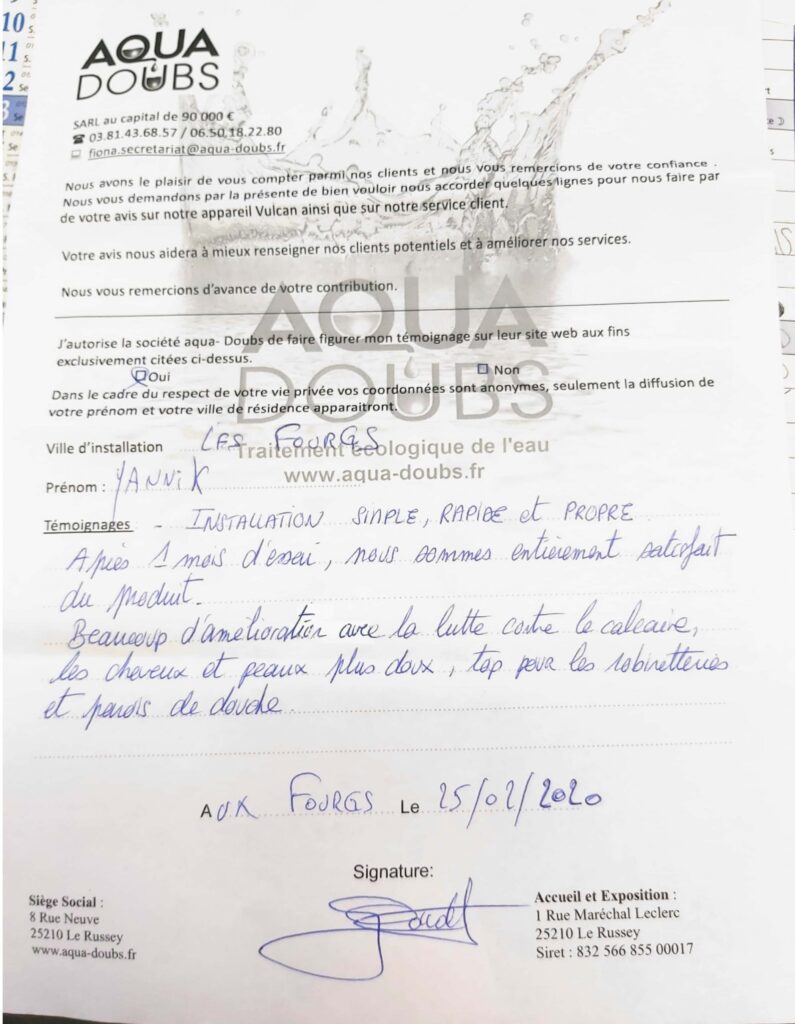 AQUA
DOUBS
SARL au capital de 90 000 €
03.81.43.68.57 / 06.50.18.22.80
fiona.secretariat@aqua-doubs.fr
Nous avons le plaisir de vous compter parmi nos clients et nous vous remercions de votre confiance .
Nous vous demandons par la présente de bien vouloir nous accorder quelques lignes pour nous faire par
de votre avis sur notre appareil Vulcan ainsi que sur notre service client.
Votre avis nous aidera à mieux renseigner nos clients potentiels et à améliorer nos services.
Nous vous remercions d'avance de votre contribution.
AQUA
DOUBS
J'autorise la société aqua- Doubs de faire figurer mon témoignage sur leur site web aux fins
exclusivement citées ci-dessus.
Oui Non
Dans le cadre du respect de votre vie privée vos coordonnées sont anonymes, seulement la diffusion de
votre prénom et votre ville de résidence apparaitront.
Ville d'installation LES FOURGS
Traitement écologique de l'eau
www.aqua-doubs.fr
Prénom : YANNiK
Témoignages - INSTALLATION SIMPLE, RAPIDE et PROPRE
Après 1 mois d'essai, nous sommes entièrement satisfait
du produit.
Beaucoup d'amélioration avec la lutte contre le calcaire,
les cheveux et peaux plus doux, top pour les robinetteries
et parois de douche.
AUX FOURGS Le 25/02/2020
Signature:
Siège Social :
8 Rue Neuve
25210 Le Russey
www.aqua-doubs.fr
Accueil et Exposition :
1 Rue Maréchal Leclerc
25210 Le Russey
Siret : 832 566 855 00017